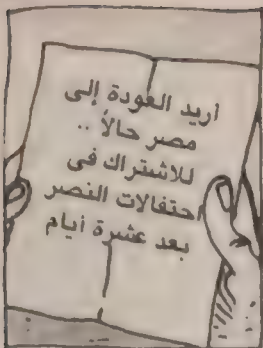 أريد العودة إلى
مصر حالاً ..
للاشتراك فى
احتفالات النصر
بعد عشرة أيام